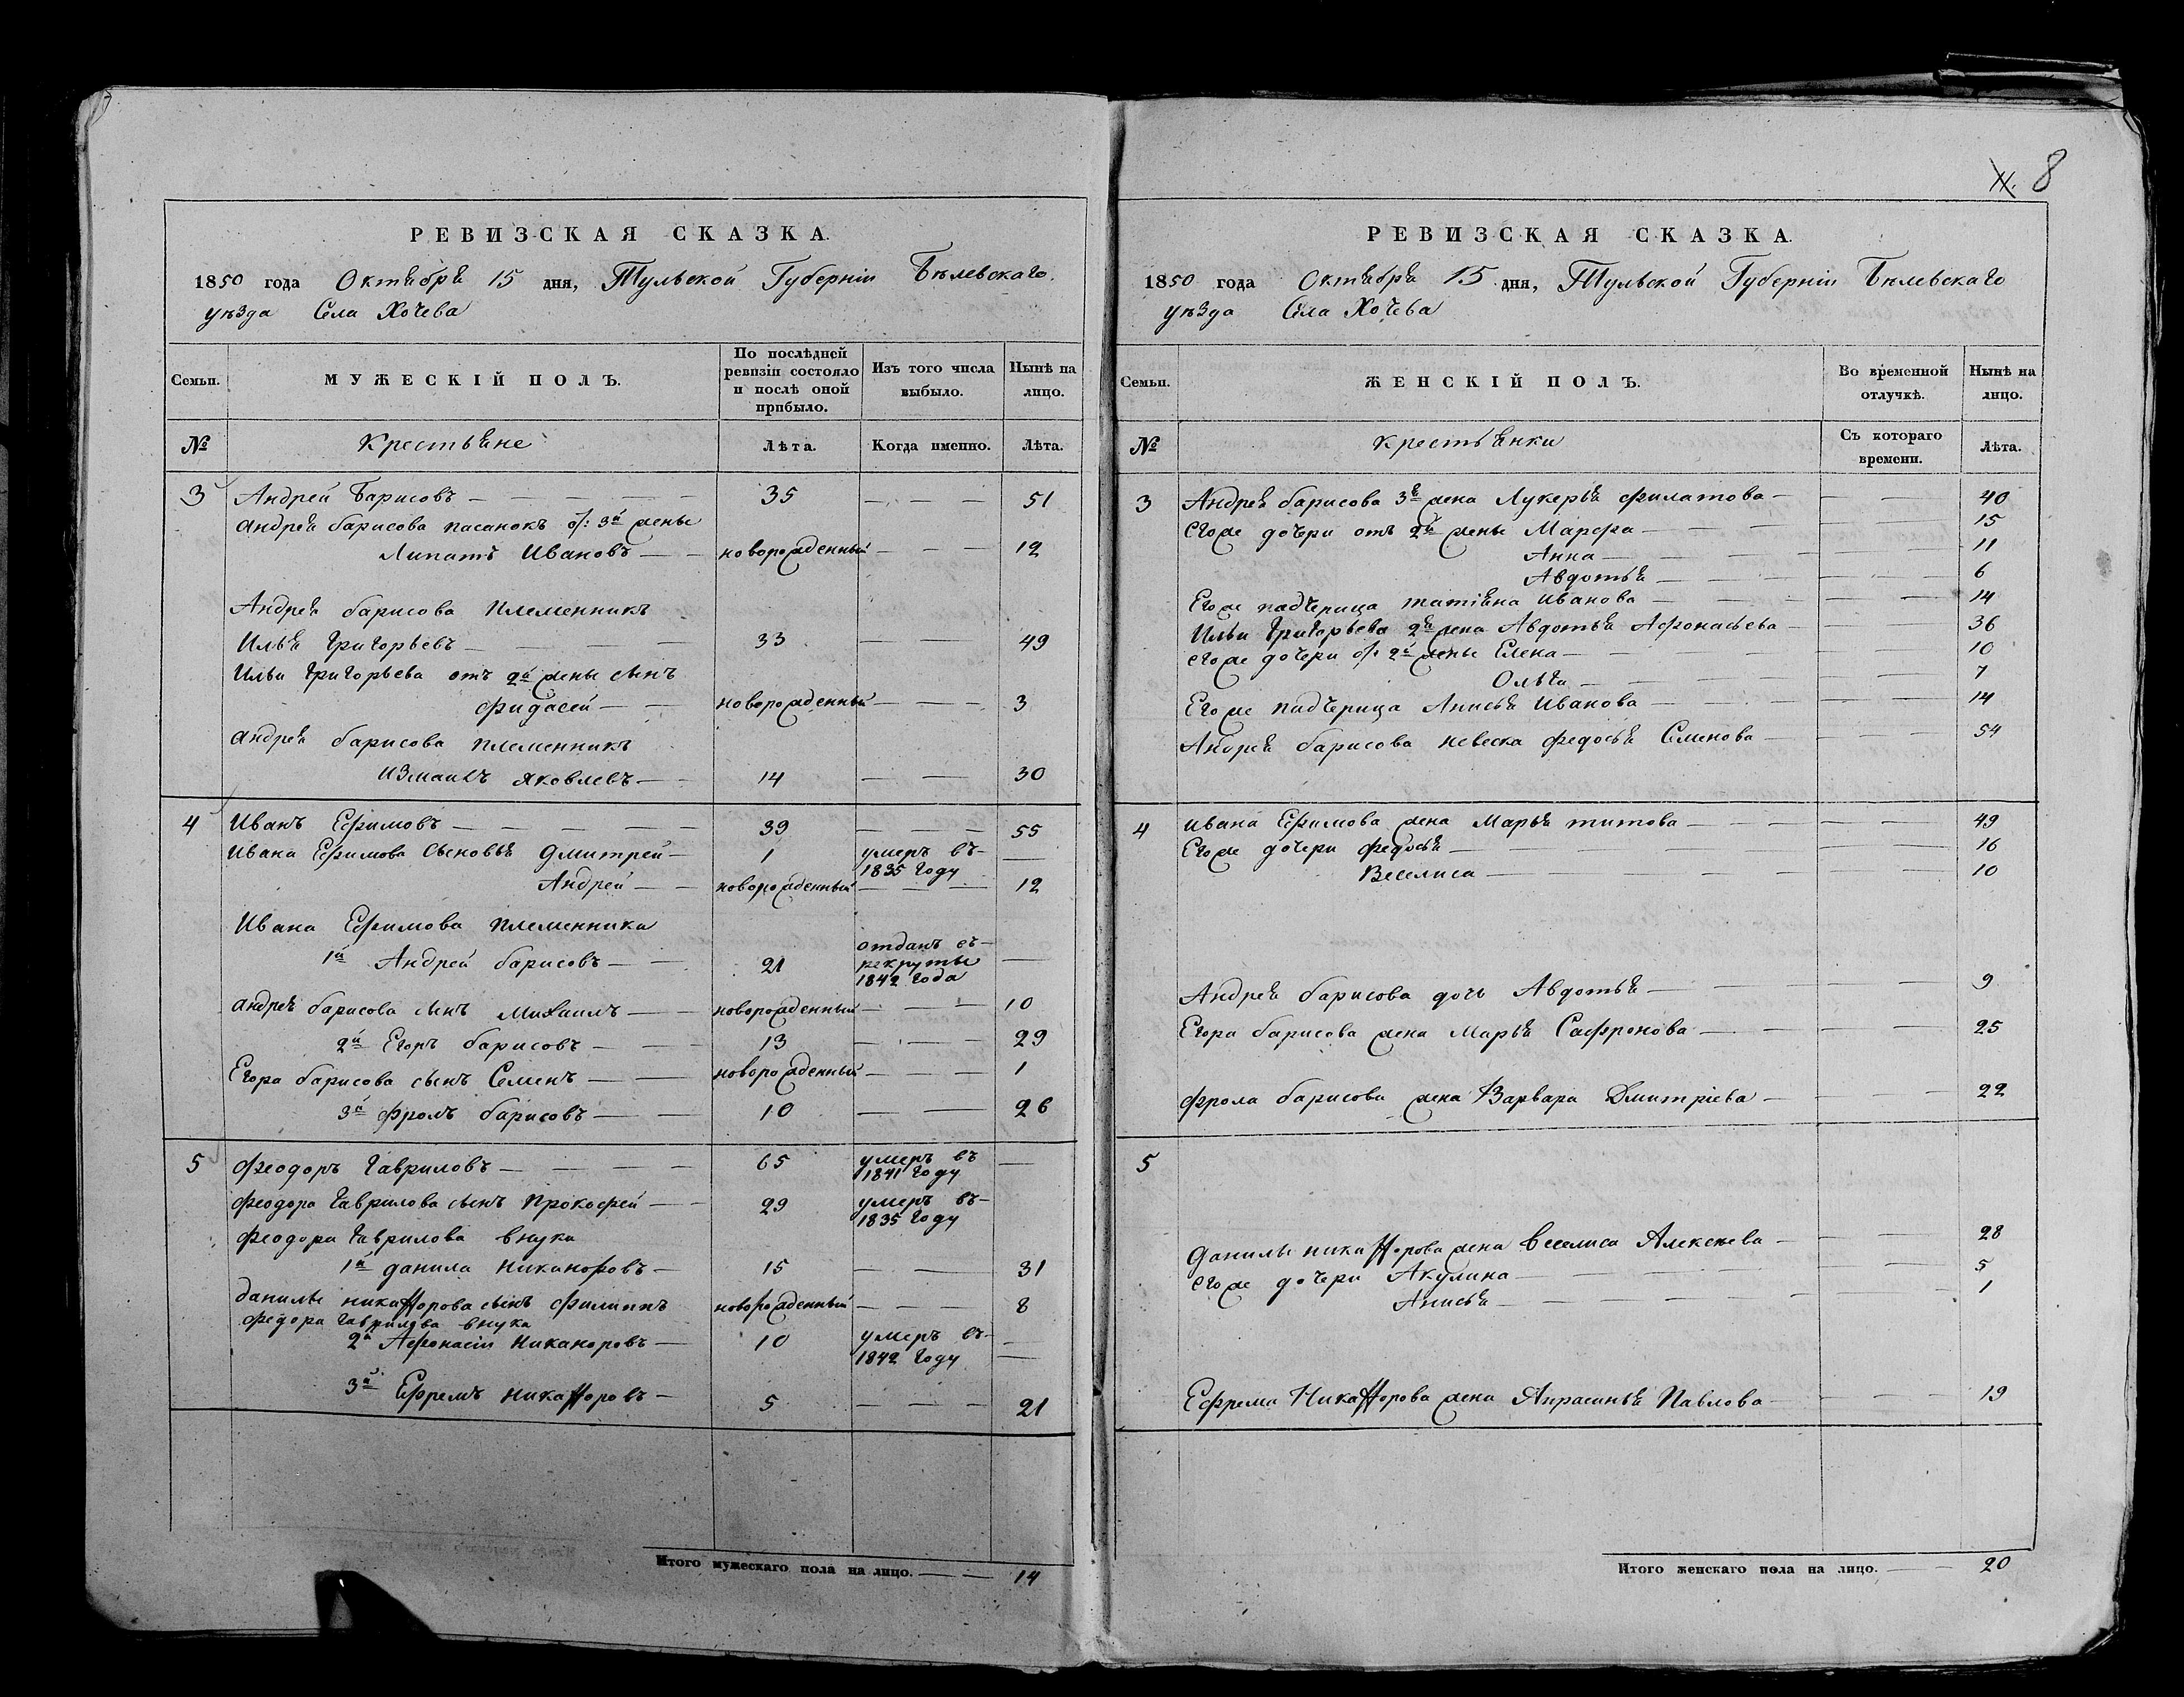 РЕВИЗСКАЯ СКАЗКА.
1850 года Октября 15 дня, Тульской Губерніи Бѣлевскаго
уѣзда Села Хочева
Семьи. МУЖЕСКІЙ ПОЛЪ. По послѣдней ревизіи состояло и послѣ оной прибыло. Изъ того числа выбыло. Нынѣ на лицо.
№ Крестьяне Лѣта. Когда именно. Лѣта.
3 Андрей Барисовъ — 35 — 51
Андрея барисова пасанокъ о/: 3й жены
Липатъ Ивановъ — новорожденный — 12
Андрея барисова племенникъ
Илья Григорьевъ — 33 — 49
Ильи Григорьева отъ 2й жены сынъ
Фидасей — новорожденный — 3
Андрея барисова племенникъ
Измаилъ Яковлевъ — 14 — 30
4 Иванъ Ефимовъ — 39 — 55
Ивана Ефимова сыновья Дмитрей — 1 умеръ въ 1835 году —
Андрей — новорожденный — 12
Ивана Ефимова племенники
1й Андрей барисовъ — 21 отданъ въ рекруты 1842 года —
Андрея барисова сынъ Михаилъ — новорожденный — 10
2й Егоръ барисовъ — 13 — 29
Егора барисова сынъ Семенъ — новорожденный — 1
3й Фролъ барисовъ — 10 — 26
5 Феодоръ Гавриловъ — 65 умеръ въ 1841 году —
Феодора Гаврилова сынъ Прокофей — 29 умеръ въ 1835 году
Феодора Гаврилова внуки
1й Данила Никаноровъ — 15 — 31
Данилы Никаффорова сынъ Филиппъ новорожденный — 8
Федора Гаврилова внука
2й Афонасіи Никаноровъ — 10 умеръ въ 1842 году —
3й Ефремъ Никаффоровъ — 5 — 21
Итого мужескаго пола на лицо. — 14
8
РЕВИЗСКАЯ СКАЗКА.
1850 года Октября 15 дня, Тульской Губерніи Бѣлевскаго
уѣзда Села Хочева
Семьи. ЖЕНСКІЙ ПОЛЪ. Во временной отлучкѣ. Нынѣ на лицо.
№ Крестьянки Съ котораго времени. Лѣта.
3 Андрея барисова 3я жена Лукерья Филатова — 40
Егоже дочери отъ 2й жены Марфа — 15
Анна — 11
Авдотья — 6
Егоже падчерица Татіяна Иванова — 14
Ильи Григорьева 2я жена Авдотья Афонасьева — 36
Егоже дочери о/: 2й жены Елена — 10
Ольга — 7
Егоже падчерица Анисья Иванова — 14
Андрея барисова невеска Федосья Семенова — 54
4 Ивана Ефимова жена Марья Титова — 49
Егоже дочери Федосья — 16
Веселиса — 10
Андрея барисова дочь Авдотья — 9
Егора барисова жена Марья Сафронова — 25
Фрола барисова жена Варвара Дмитріева — 22
5
Данилы Никаффорова жена Веселиса Алексѣева — 28
Егоже дочери Акулина — 5
Анисья — 1
Ефрема Никаффорова жена Апрасинья Павлова — 19
Итого женскаго пола на лицо. — 20